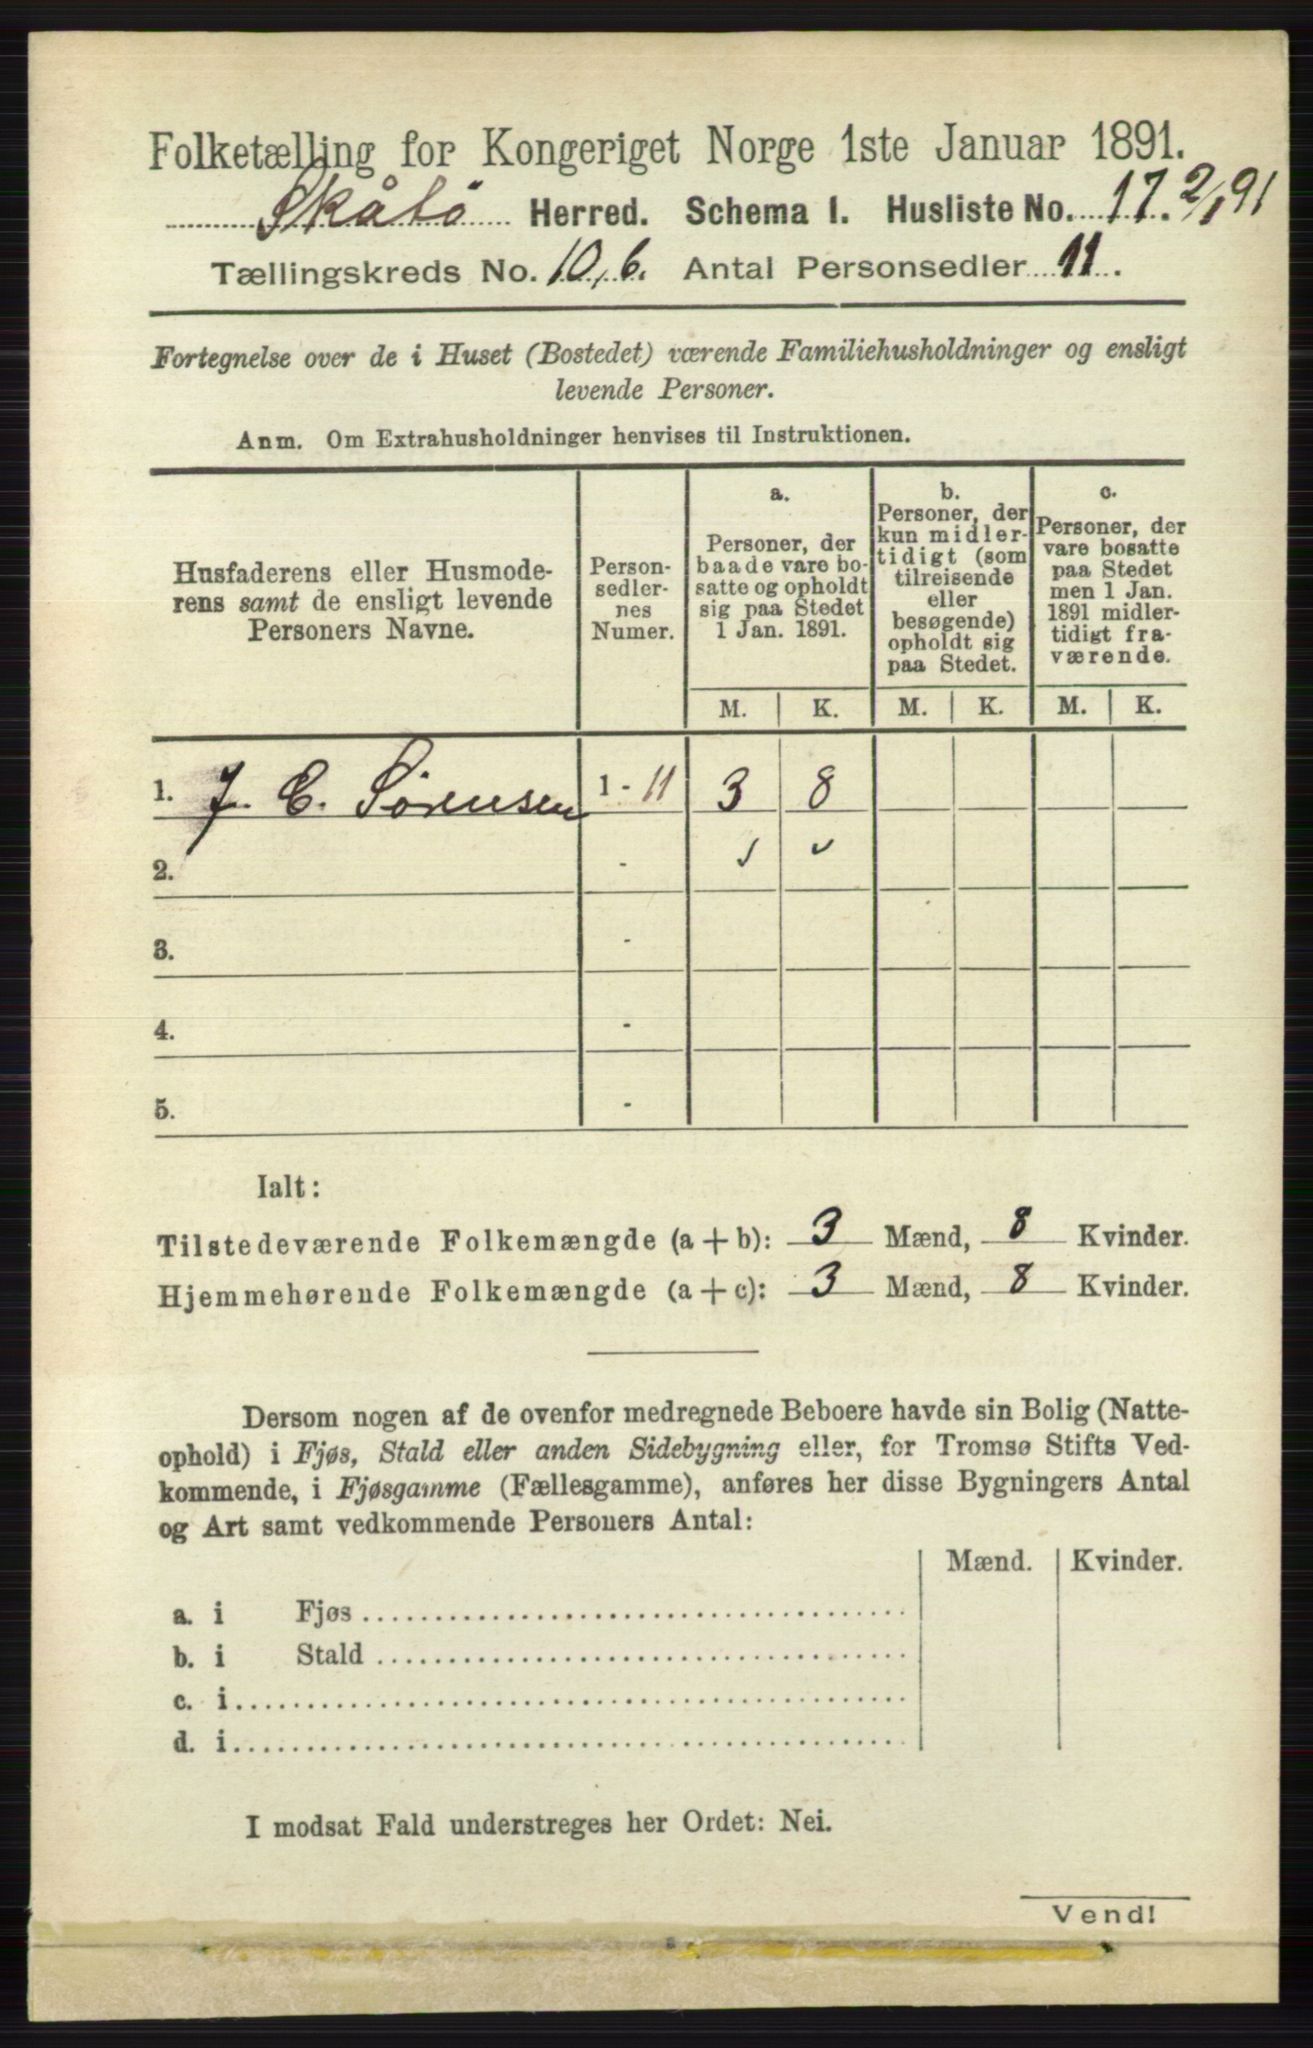 Folketælling for Kongeriget Norge 1ste Januar 1891.
Skåtö Herred. Schema 1. Husliste No. 17. 2/1 91
Tællingskreds No. 10, 6. Antal Personsedler 11.
Fortegnelse over de i Huset (Bostedet) værende Familiehusholdninger og ensligt
levende Personer.
Anm. Om Extrahusholdninger henvises til Instruktionen.
Husfaderens eller Husmode-
rens samt de ensligt levende
Personers Navne.
Person-
sedler-
nes
Numer.
a.
Personer, der
baade vare bo-
satte og opholdt
sig paa Stedet
1 Jan. 1891.
b.
Personer, der
kun midler-
tidigt (som
tilreisende
eller
besøgende)
opholdt sig
paa Stedet.
c.
Personer, der
vare bosatte
paa Stedet
men 1 Jan.
1891 midler-
tidigt fra-
værende.
M. K. M. K. M. K.
1. J. C. Sørensen 1 - 11 3 8
2. - ✓ ✓
3. -
4. -
5. -
Ialt:
Tilstedeværende Folkemængde (a + b): 3 Mænd, 8 Kvinder.
Hjemmehørende Folkemængde (a + c): 3 Mænd, 8 Kvinder.
Dersom nogen af de ovenfor medregnede Beboere havde sin Bolig (Natte-
ophold) i Fjøs, Stald eller anden Sidebygning eller, for Tromsø Stifts Ved-
kommende, i Fjøsgamme (Fællesgamme), anføres her disse Bygningers Antal
og Art samt vedkommende Personers Antal:
Mænd. Kvinder.
a. i Fjøs
b. i Stald
c. i
d. i
I modsat Fald understreges her Ordet: Nei.
Vend!